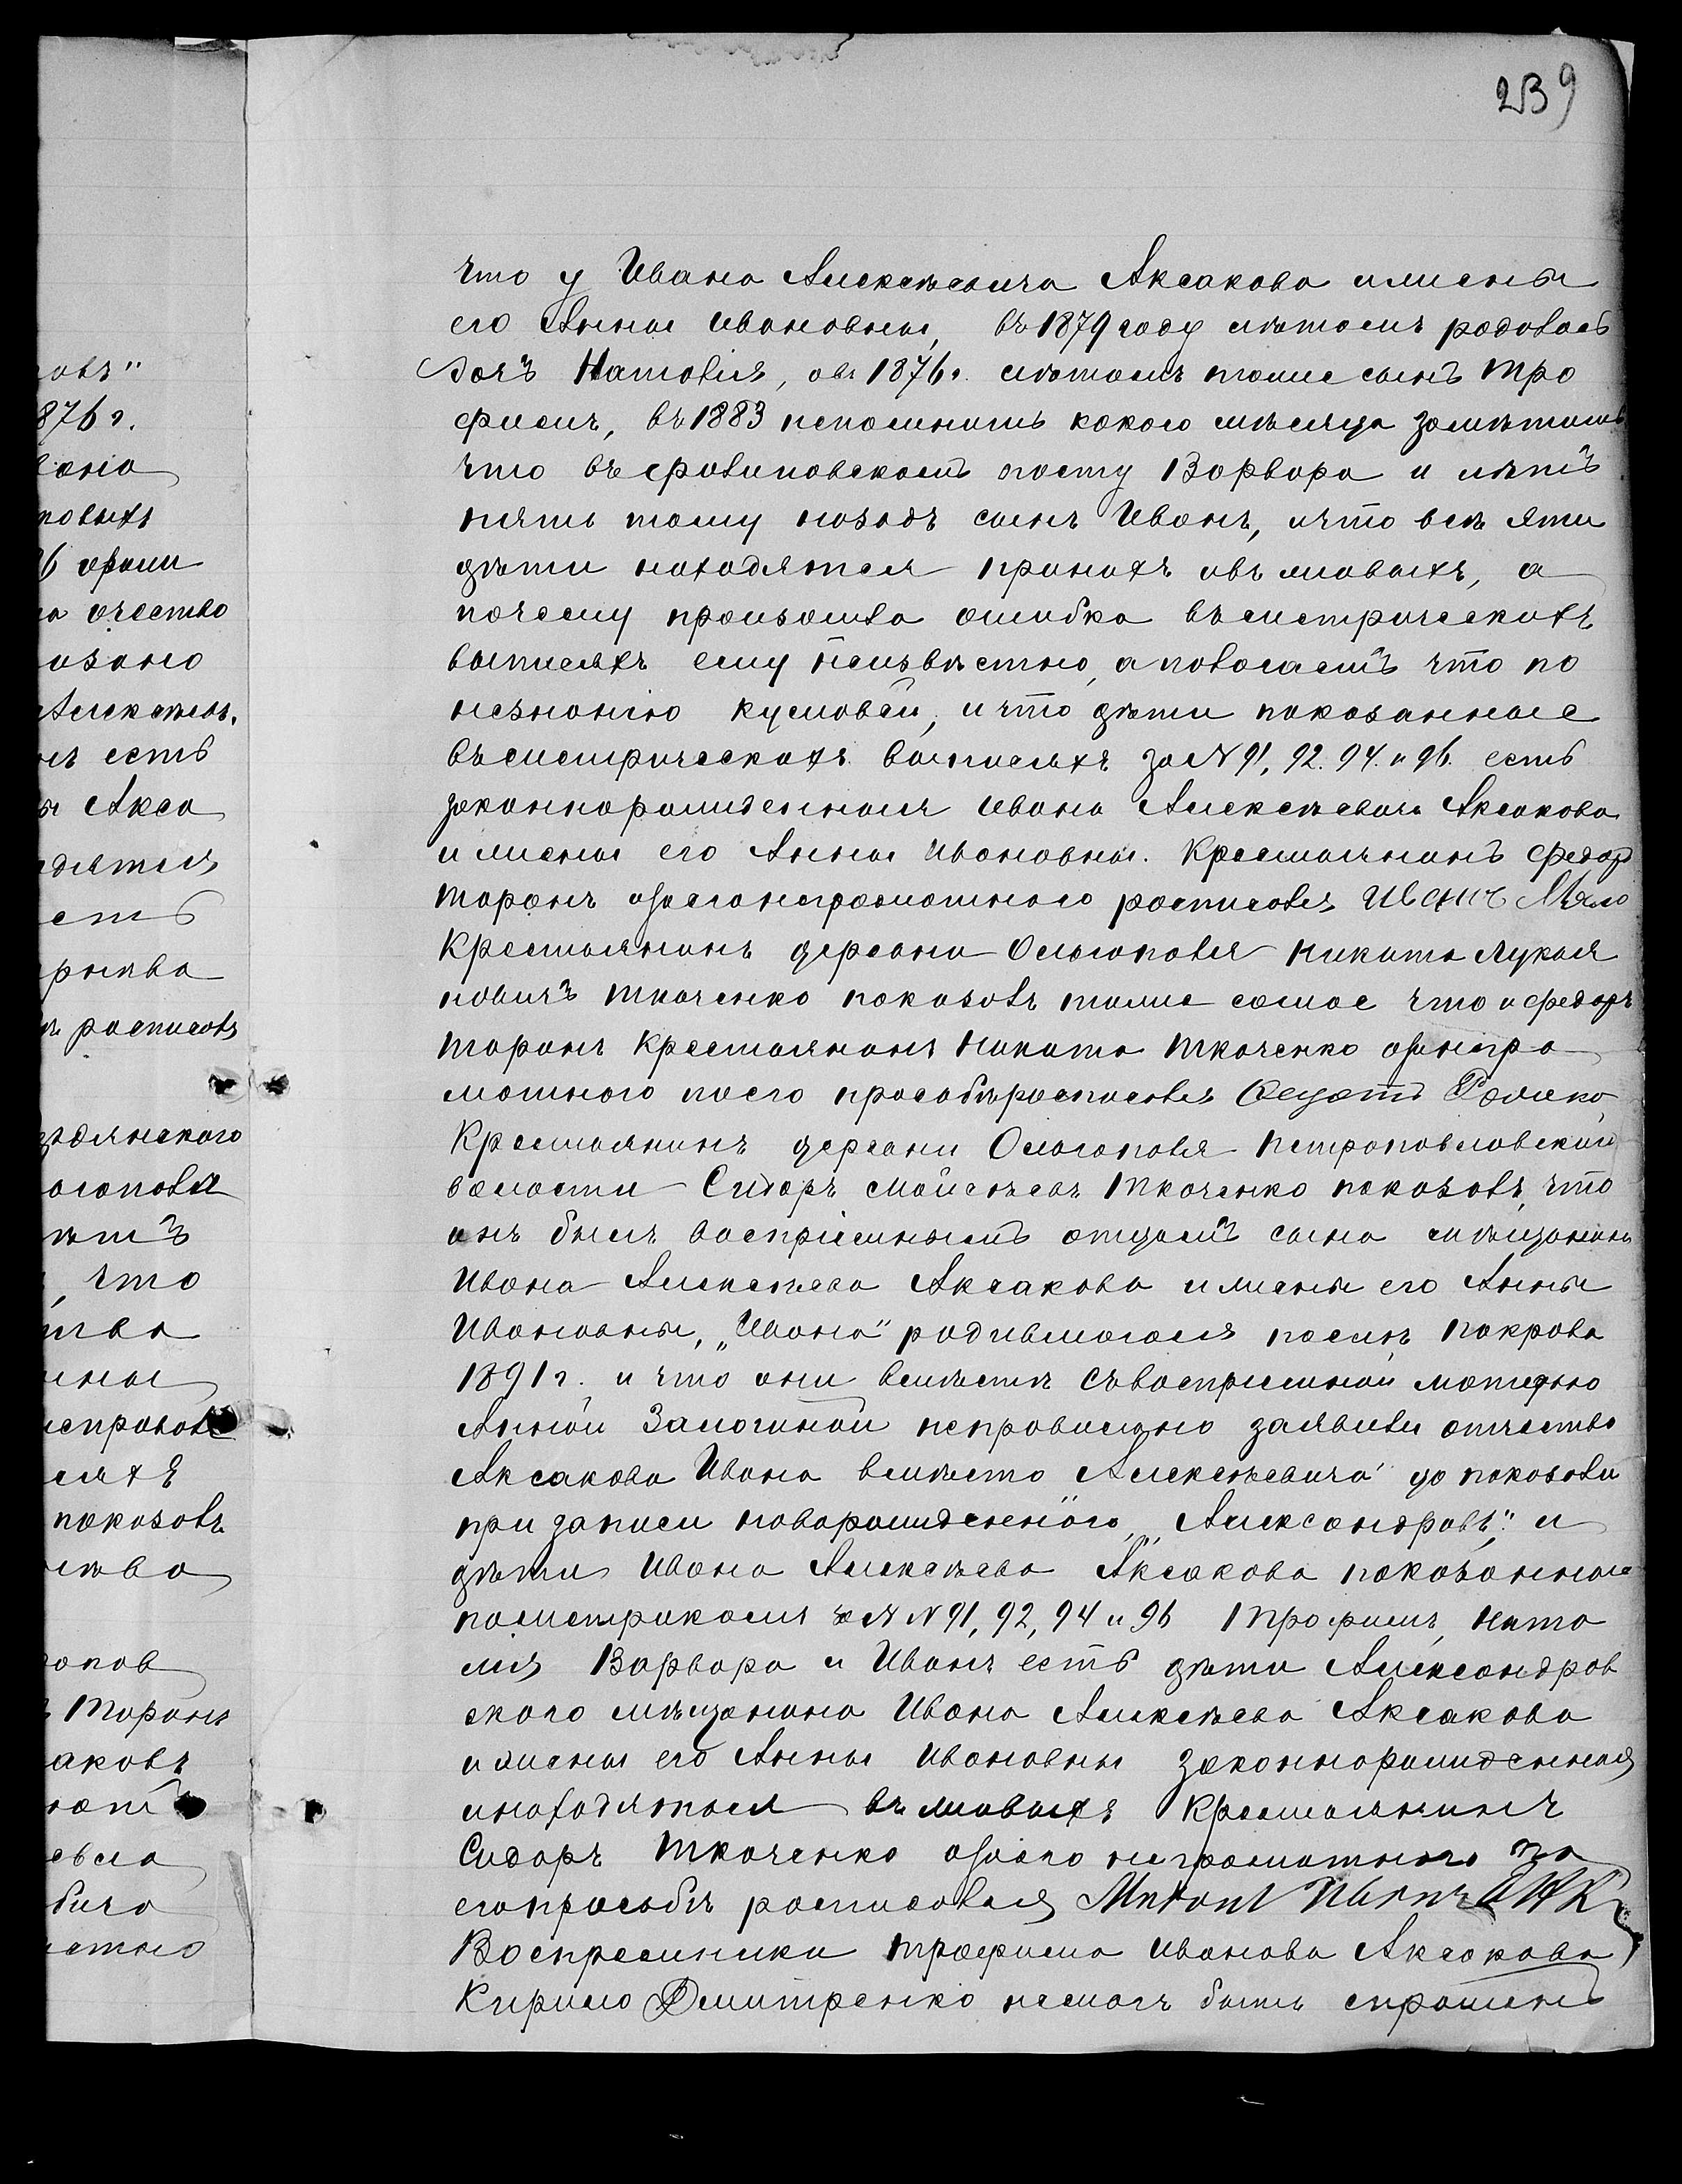 239
что у Ивана Алексѣевича Аксакова ижены
его Анны Ивановны, въ 1879 году лѣтомъ родолась
дочъ Наталія, авъ 1876 г. лѣтомъ тоже сынъ Тро
фимъ, въ 1883 непомнитъ какого мѣсяца
что въ филиповскомъ посту Варвара и лѣтъ
пять тому назадъ сынъ Иванъ, ичто всѣ эти
дѣти находятся при нихъ авъ живыхъ, а
почему произошла ошибка въ метрическихъ
выписяхъ ему неизвѣстно, а пологаетъ что по
незнонію кумовей, и что дѣти показанные
въ метрическихъ выписяхъ за N 91, 92. 94. и 96. есть
законнорожденныя Ивана Алексѣевича Аксакова
и жены его Анны Ивановны. Крестьянинъ Федоръ
Таранъ азасго неграмотного росписолся Иванъ
Крестьянинъ деревни Ольгополя Никита Лукья
новичъ Ткаченко показолъ тоже самое что и Федоръ
Таранъ Крестьянинъ Никита Ткаченко азанегра
мотного поего просьбѣ росписолся
Крестьянинъ деревни Ольгополя Петропавловской
волости Сидоръ Мойсѣевъ Ткаченко показолъ, что
онъ былъ воспріемнымъ отцомъ сына мѣщанина
Ивана Алексѣева Аксакова ижены его Анны
Ивановны, „Ивана" родившогося послѣ Покрова
1891 г. и что они вмѣстѣ съвоспріемной матерью
Анной Замогиной неправильно заявили отчество
Аксакова Ивана вмѣсто Алексѣевича да показоли
при записи новорожденного „Александровъ" и
дѣти Ивана Алексѣева Аксакова показанныя
пометрикамъ за N 91, 92, 94 и 96 Трофимъ, Ната
лія Варвара и Иванъ есть дѣти Александров
ского мѣщанина Ивана Алексѣева Аксакова
ижены его Анны Ивановны законнорожденныя
инаходятся въ живыхъ Крестьянинъ
Сидоръ Ткаченко азаего неграмотного по
его просьбѣ росписолся
Воспреемники Трофима Иванова Аксакова,
Кирило Дмитренко немогъ быть спрошенъ
овъ"
876 г.
вана
повыхъ
ча отчество
азано
Алексѣев.
нъ есть
ы Акса
дятся
есть
росписолъ
здянского
огополя
что
еправов
сяхъ
показолъ
опов
Таранъ
аковъ